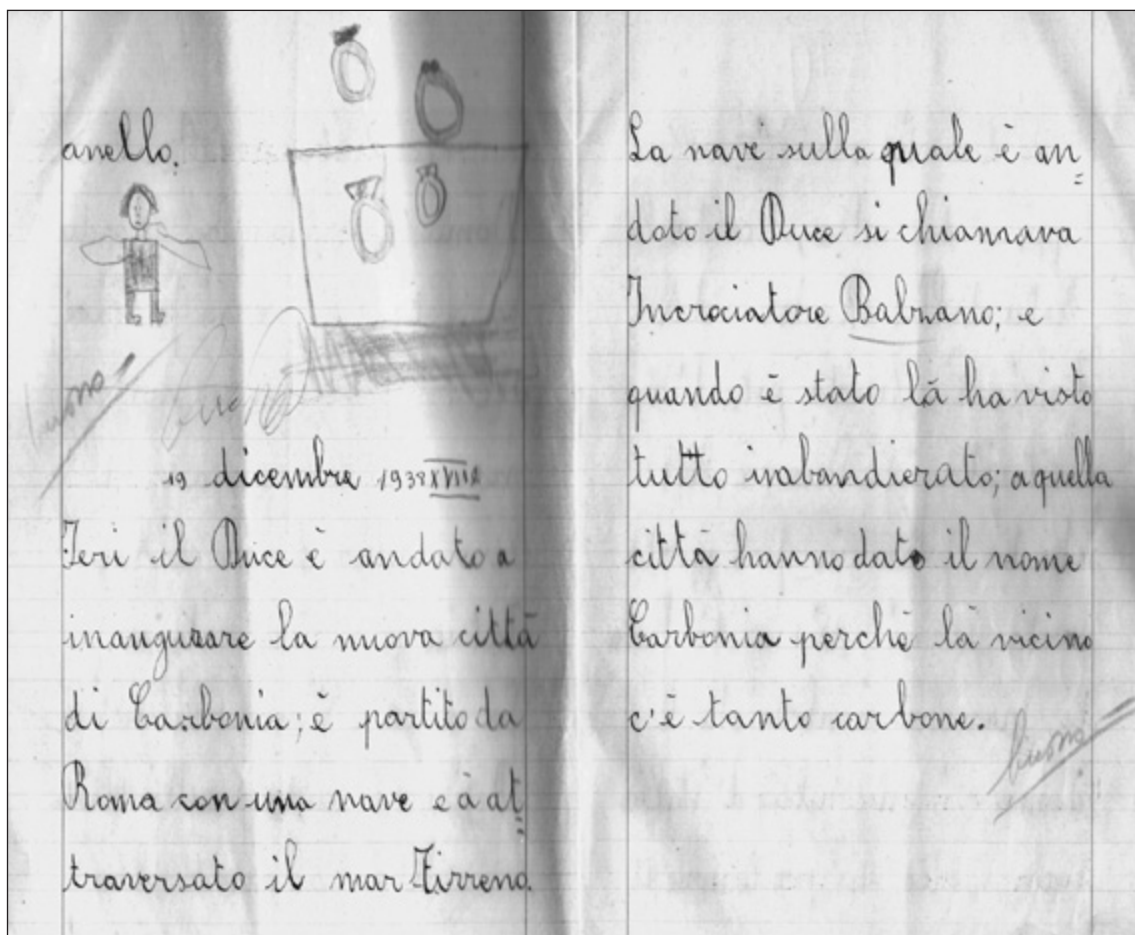 anello.
buono
19 dicembre 1938 XVIIA
Ieri il Duce è andato a
inaugurare la nuova città
di Carbonia; è partito da
Roma con una nave e à at
traversato il mar Tirreno.
La nave sulla quale è an
dato il Duce si chiamava
Incrociatore Balzano; e
quando è stato là ha visto
tutto inbandierato; a quella
città hanno dato il nome
Carbonia perchè là vicino
c'è tanto carbone.
buono